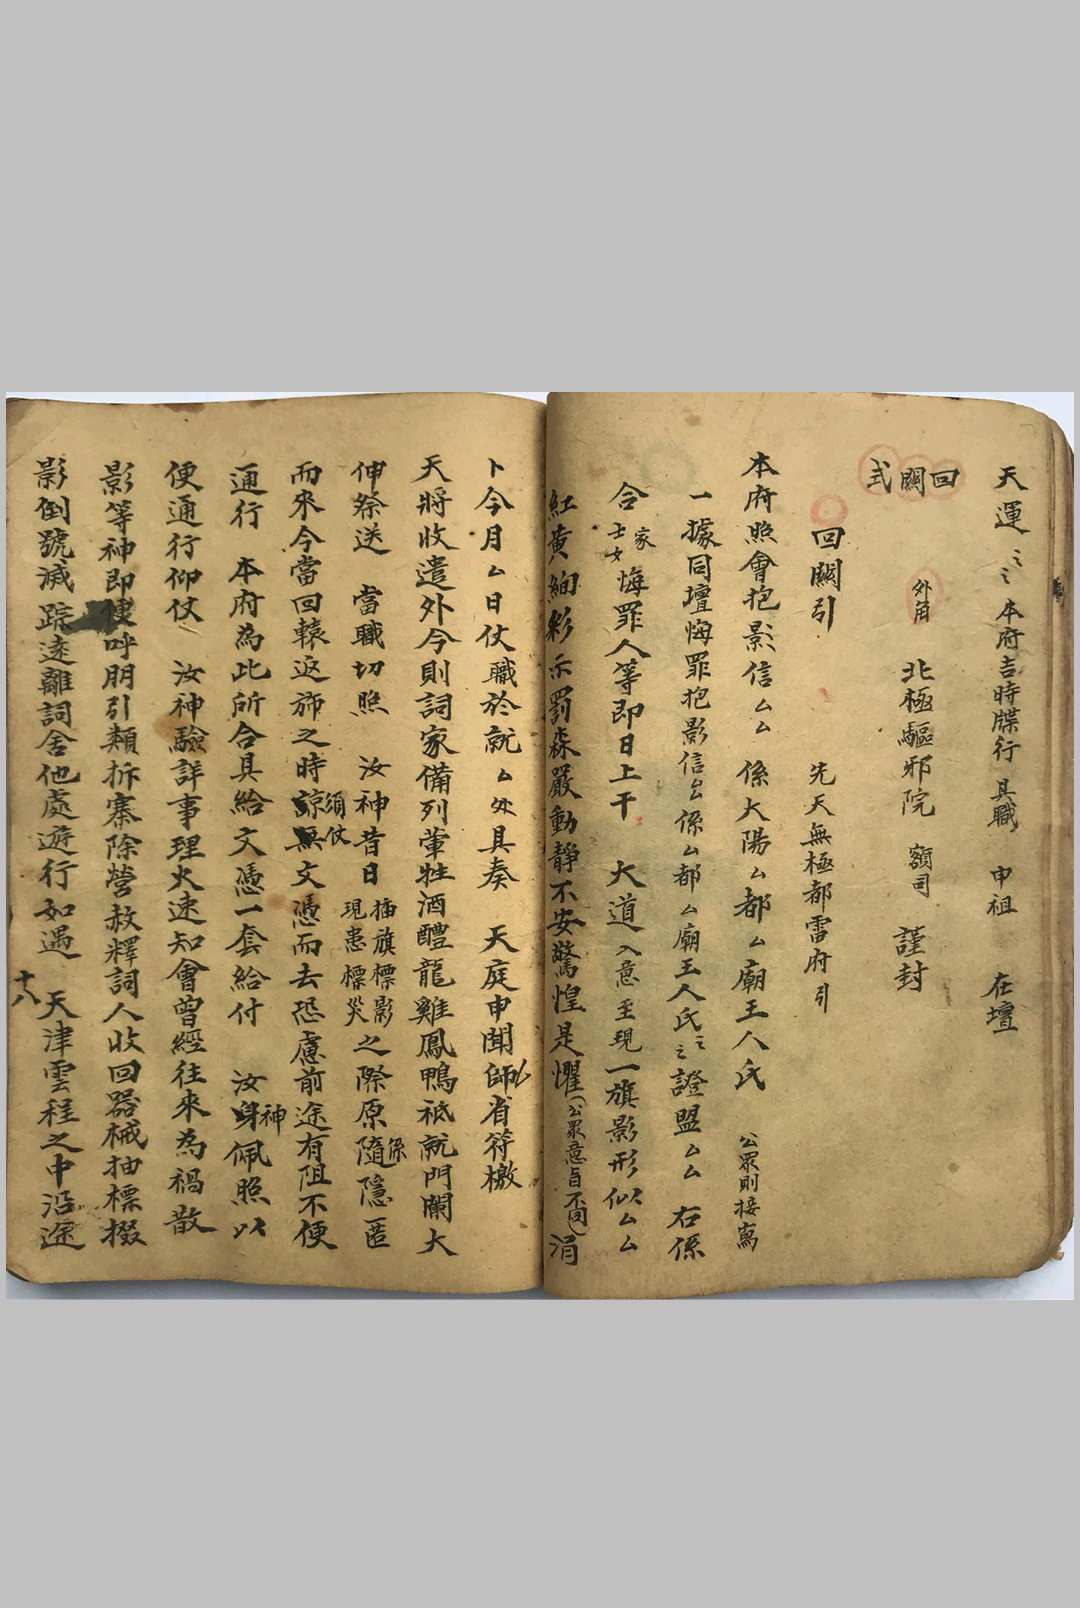 天運〻〻本府吉時牒行 具職 申祖 在壇
回關式
外角 北極驅邪院 額司 謹封
回關引 先天無極都雷府引
本府照會抱影信厶厶 係大陽厶都厶廟王人氏 公眾則接寫
一據同壇悔罪抱影信厶厶係厶都厶廟王人氏〻〻證盟厶厶 右係
合家士女悔罪人等即日上干 大道入意至現一旗影形似厶厶
紅黄絢彩示罰森嚴動靜不安驚惶是懼(公眾意旨不同)涓
卜今月厶日仗職於就厶処具奏 天庭申聞師省符檄
天將收遣外今則詞家備列葷牲酒醴龍雞鳳鴨祗就門闌大
伸祭送 當職切照 汝神昔日插旗標影現患標災之際原係隨隱匿
而來今當回轅返斾之時須仗諒無文憑而去恐慮前途有阻不便
通行 本府為此所合具給文憑一套給付 汝神身佩照以
便通行仰仗 汝神驗詳事理火速知會曾經往來為禍散
影等神即便呼朋引類拆寨除營赦釋詞人收回器械抽標掇
影倒號滅踪遠離詞舍他處遊行如遇 天津雲程之中沿途
十八